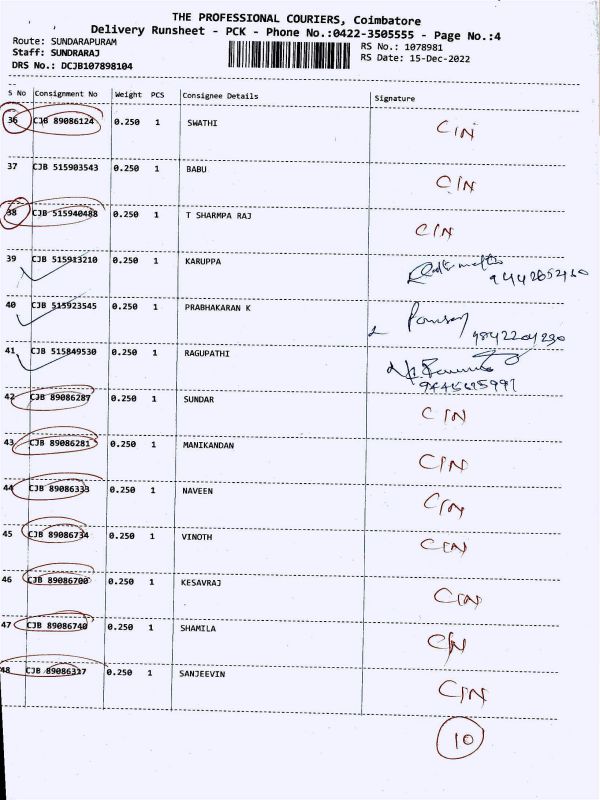 THE PROFESSIONAL COURIERS, Coimbatore
Delivery Runsheet - PCK - Phone No.:0422-3505555 - Page No.:4
Route: SUNDARAPURAM
Staff: SUNDRARAJ
DRS No.: DCJB107898104
RS No.: 1078981
RS Date: 15-Dec-2022
S No Consignment No Weight PCS Consignee Details Signature
36 CJB 89086124 0.250 1 SWATHI CIN
37 CJB 515903543 0.250 1 BABU CIN
38 CJB 515940488 0.250 1 T SHARMPA RAJ CIN
39 CJB 515913210 0.250 1 KARUPPA
40 CJB 515923545 0.250 1 PRABHAKARAN K
9842204230
41 CJB 515849530 0.250 1 RAGUPATHI
42 CJB 89086287 0.250 1 SUNDAR CIN
43 CJB 89086281 0.250 1 MANIKANDAN CIN
44 CJB 89086333 0.250 1 NAVEEN CIN
45 CJB 89086734 0.250 1 VINOTH CIN
46 CJB 89086700 0.250 1 KESAVRAJ CIN
47 CJB 89086740 0.250 1 SHAMILA CIN
48 CJB 89086327 0.250 1 SANJEEVIN CIN
10